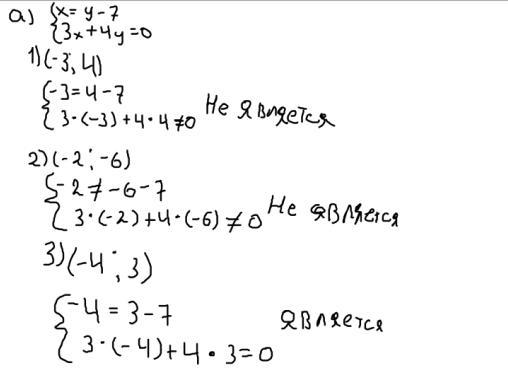 а) {x = y - 7
{3x + 4y = 0
1) (-3; 4)
{-3 = 4 - 7
{3·(-3) + 4·4 ≠ 0 Не является
2) (-2; -6)
{-2 ≠ -6 - 7
{3·(-2) + 4·(-6) ≠ 0 Не является
3) (-4; 3)
{-4 = 3 - 7
{3·(-4) + 4·3 = 0 является